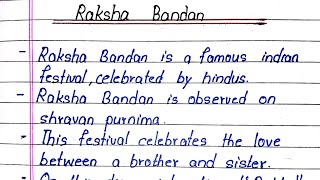 Raksha Bandan
- Raksha Bandan is a famous indian
festival, celebrated by hindus.
- Raksha Bandan is observed on
shravan purnima.
- This festival celebrates the love
between a brother and sister.